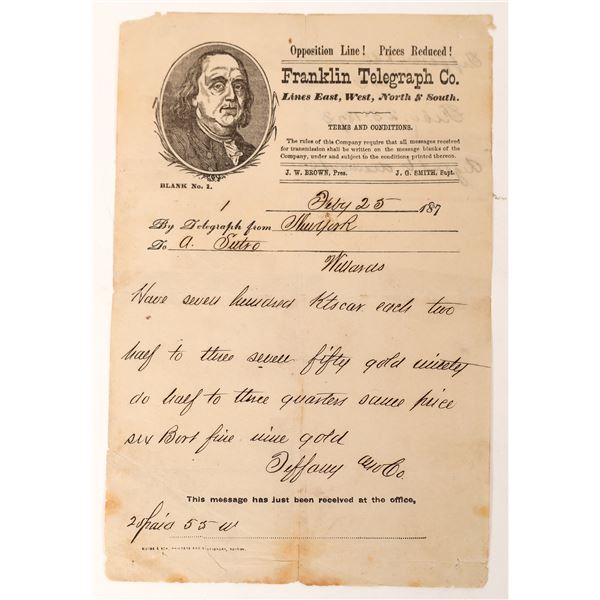 Opposition Line! Prices Reduced!
Franklin Telegraph Co.
Lines East, West, North & South.
TERMS AND CONDITIONS.
The rules of this Company require that all messages received
for transmission shall be written on the message blanks of the
Company, under and subject to the conditions printed thereon.
J. W. BROWN, Pres. J. G. SMITH, Supt.
BLANK No. 1.
1 Feby 25 187
By Telegraph from New York
To A. Sutro
Willards
Have seven hundred Ktscar each two
half to three seven fifty gold ninety
do half to three quarters same price
six Bort fine nine gold
Tiffany & Co.
This message has just been received at the office,
20 paid 55 W